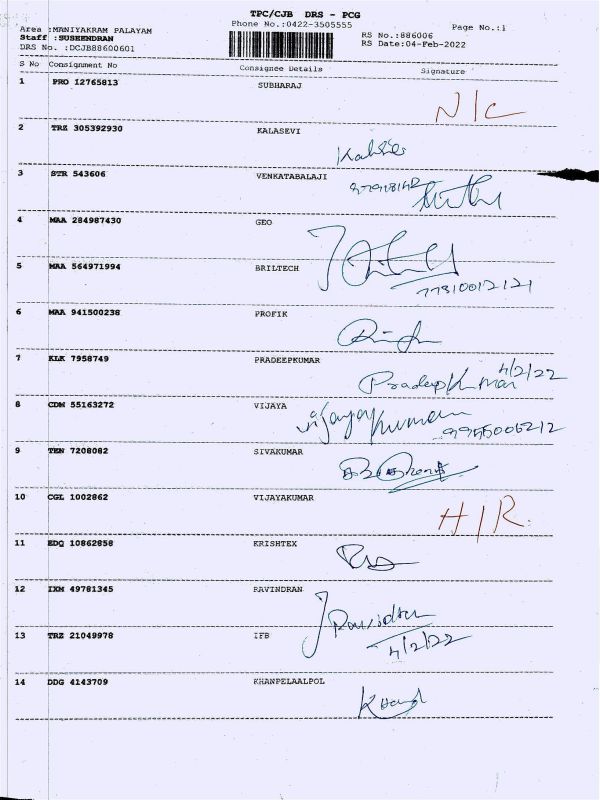 TPC/CJB DRS - PCG
Area :MANIYAKRAM PALAYAM Phone No.:0422-3505555 Page No.:1
Staff :SUSEENDRAN RS No.:886006
DRS No. :DCJB88600601 RS Date:04-Feb-2022
S No Consignment No Consignee Details Signature
1 PRO 12765813 SUBHARAJ
N/C
2 TRZ 305392930 KALASEVI
3 STR 543606 VENKATABALAJI
4 MAA 284987430 GEO
5 MAA 564971994 BRILTECH
77310012121
6 MAA 941500238 PROFIK
7 KLK 7958749 PRADEEPKUMAR 4/2/22
Pradeep Kumar
8 CDM 55163272 VIJAYA Vijayakumar
9955006212
9 TEN 7208082 SIVAKUMAR
10 CGL 1002862 VIJAYAKUMAR
H/R.
11 EDQ 10862858 KRISHTEX
12 IXM 49781345 RAVINDRAN
Ravindran
13 TRZ 21049978 IFB 4/2/22
14 DDG 4143709 KHANPELAALPOL